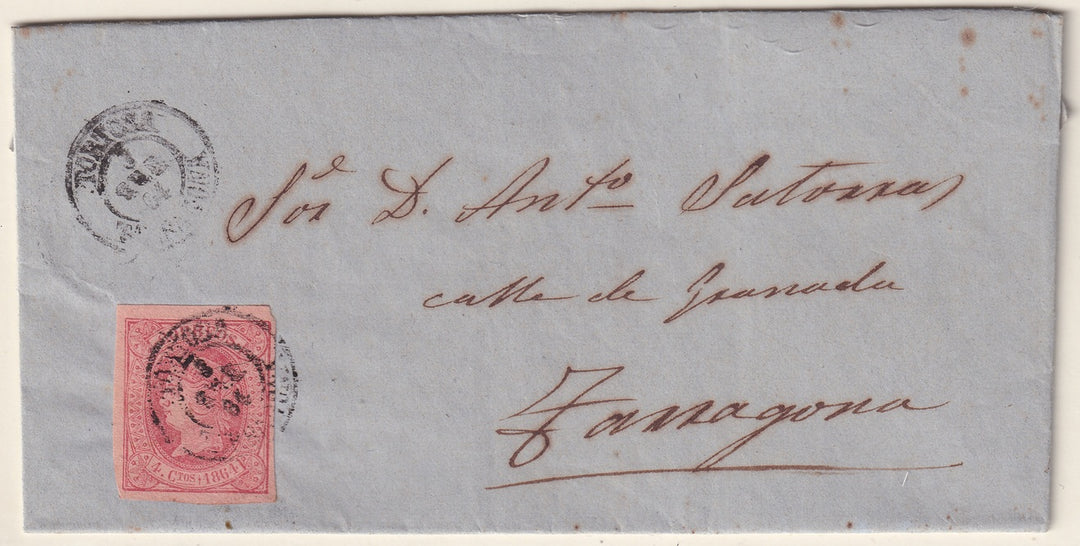 TORTOSA
Sór. D. Antº Satorras
calle de Granada
Tarragona
4. Ctos 1864